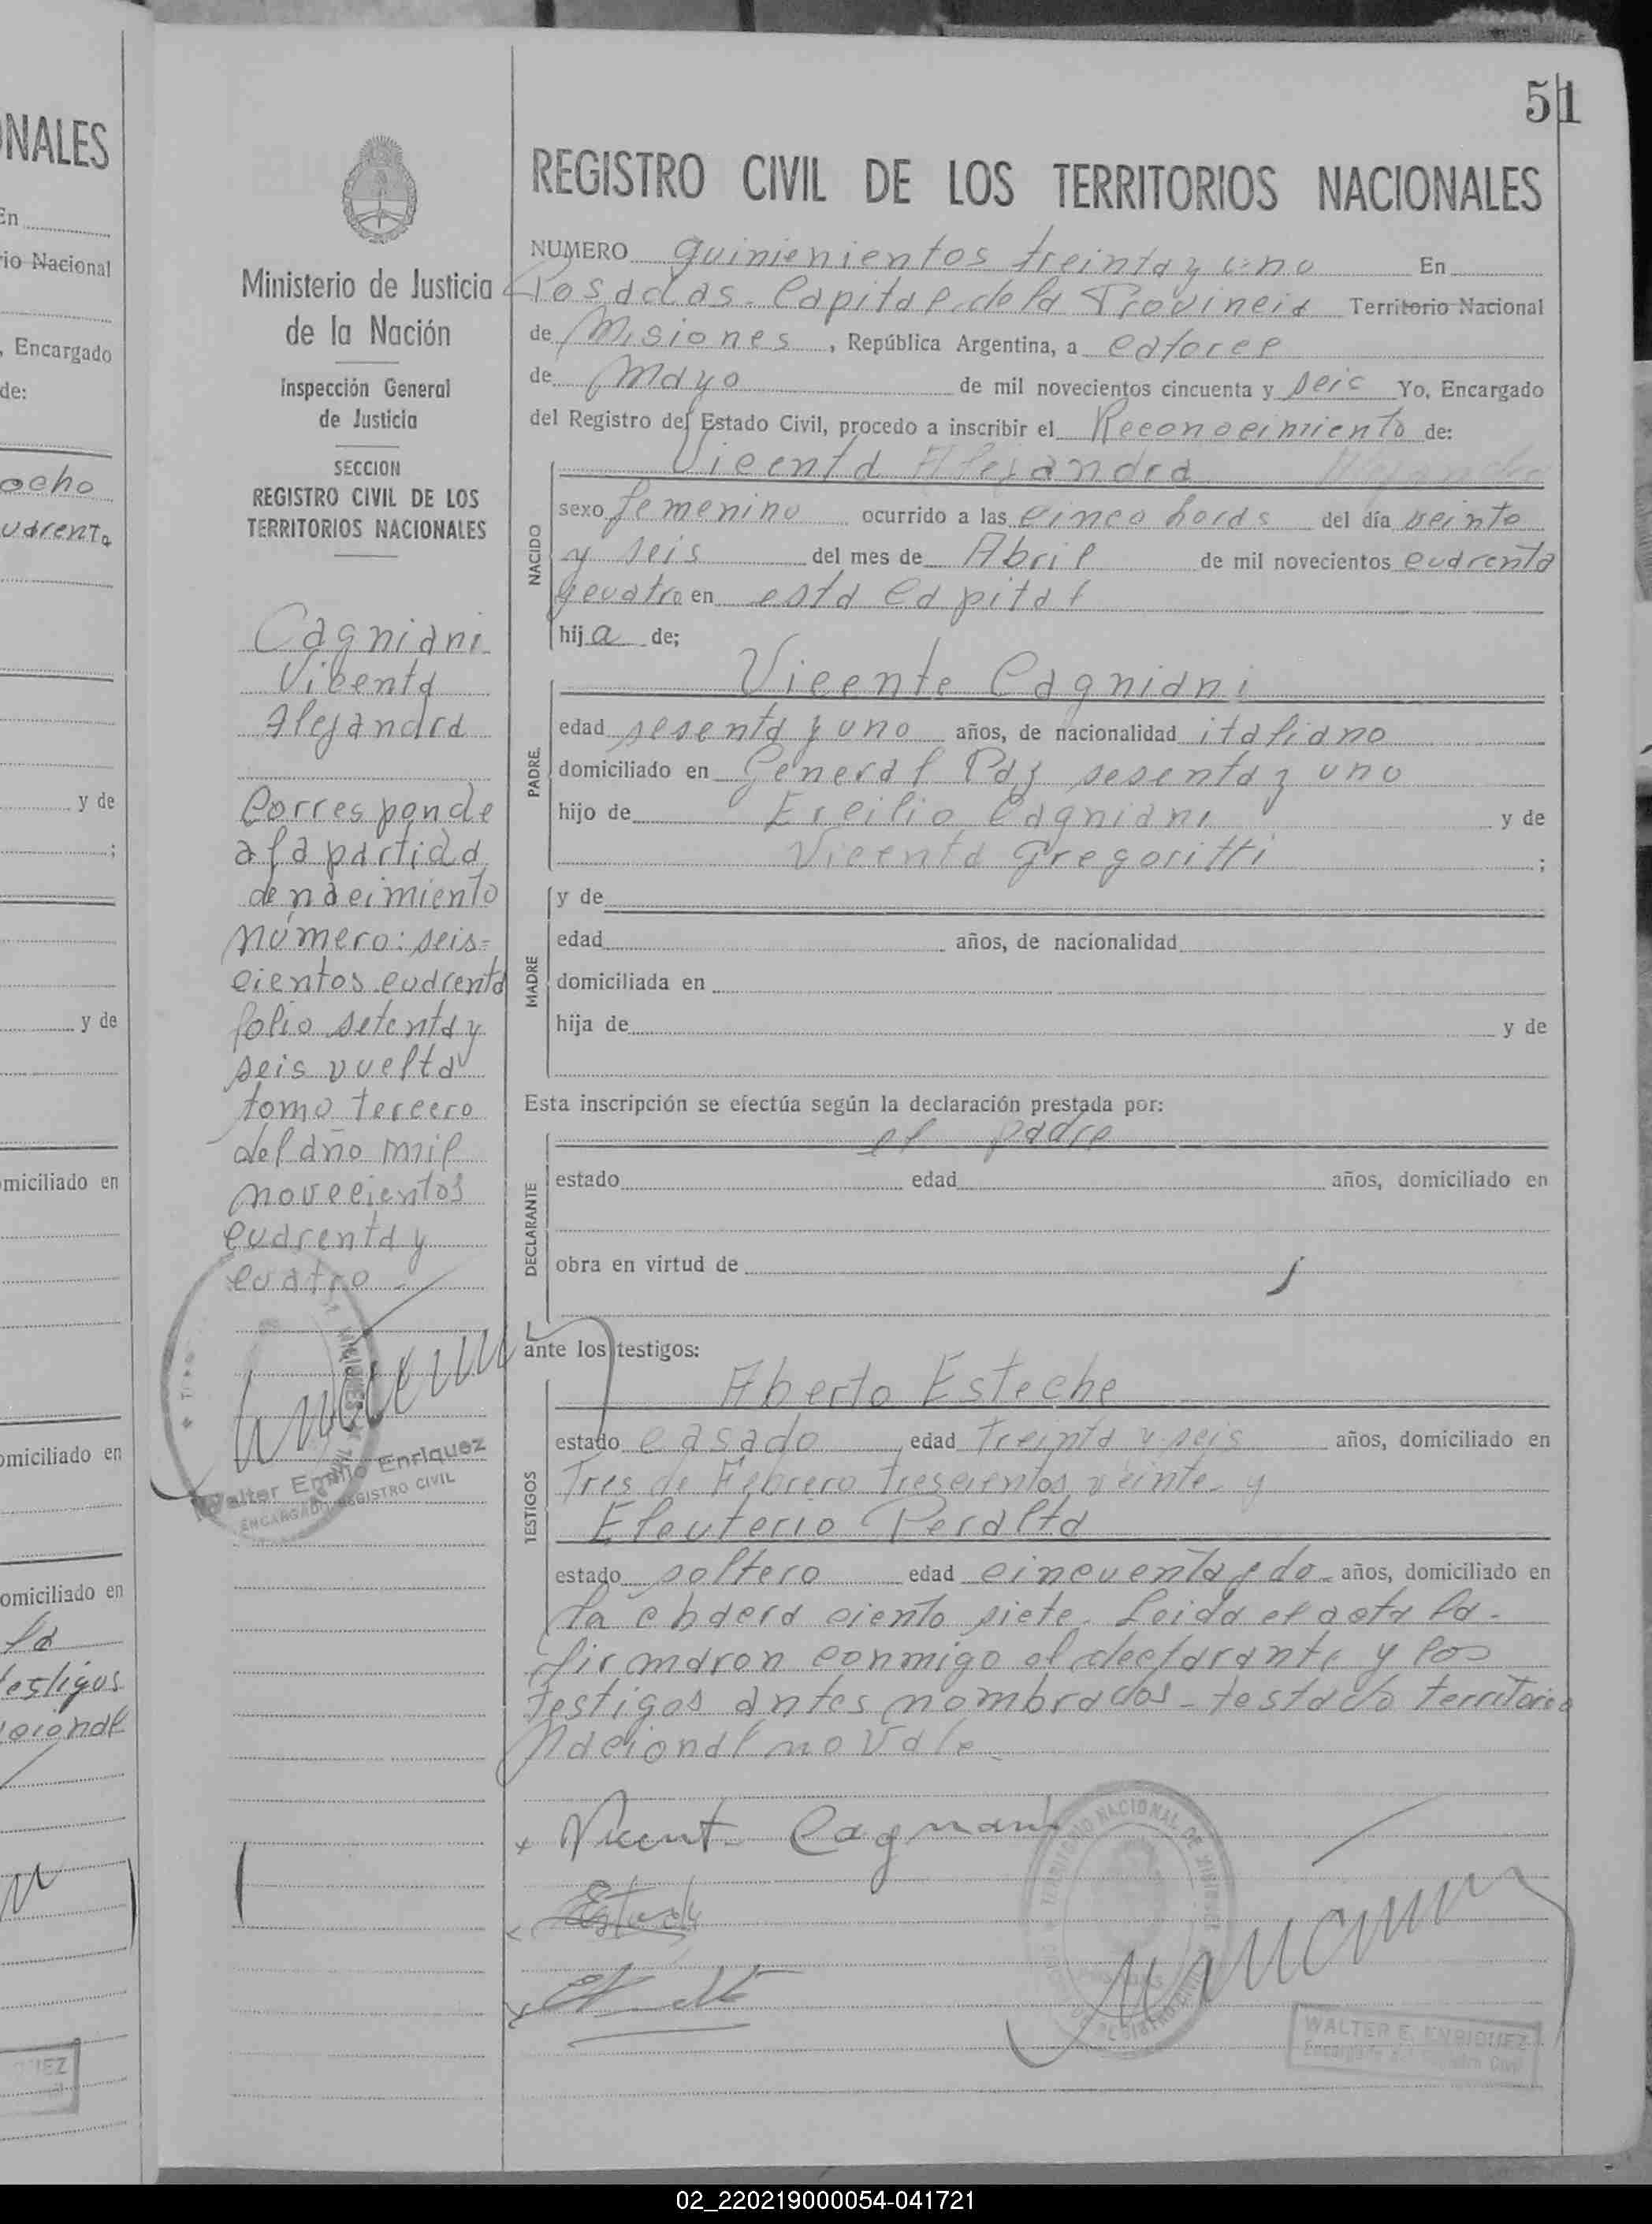 51
NALES
En
rio Nacional
, Encargado
de:
ocho
uarenta
y de
;
y de
miciliado en
omiciliado en
omiciliado en
la
testigos
cional
Ministerio de Justicia
de la Nación
Inspección General
de Justicia
SECCION
REGISTRO CIVIL DE LOS
TERRITORIOS NACIONALES
Cagniani
Vicenta
Alejandra
Corresponde
a la partida
de nacimiento
número: seis=
cientos cuarenta
folio setenta y
seis vuelta
tomo tercero
del año mil
novecientos
cuarenta y
cuatro
Walter Emilio Enriquez
ENCARGADO REGISTRO CIVIL
REGISTRO CIVIL DE LOS TERRITORIOS NACIONALES
NUMERO quinienientos treinta y uno En
Posadas. Capital de la Provincia Territorio Nacional
de Misiones, República Argentina, a catorce
de Mayo de mil novecientos cincuenta y seis Yo, Encargado
del Registro del Estado Civil, procedo a inscribir el Reconocimiento de:
Vicenta Alejandra
NACIDO
sexo femenino ocurrido a las cinco horas del día veinte
y seis del mes de Abril de mil novecientos cuarenta
y cuatro en esta Capital
hija de;
PADRE
Vicente Cagniani
edad sesenta y uno años, de nacionalidad italiano
domiciliado en General Paz sesenta y uno
hijo de Ercilio Cagniani y de
Vicenta Gregoritti ;
MADRE
y de
edad años, de nacionalidad
domiciliada en
hija de y de
Esta inscripción se efectúa según la declaración prestada por:
DECLARANTE
el padre
estado edad años, domiciliado en
obra en virtud de
ante los testigos:
TESTIGOS
Aberto Esteche
estado casado edad treinta y seis años, domiciliado en
Tres de Febrero trescientos veinte y
Eleuterio Peralta
estado soltero edad cincuenta y do años, domiciliado en
la chacra ciento siete. Leida el acta la
firmaron conmigo el declarante y los
testigos antes nombrados - testado territorio
Nacional no vale.
Vicente Cagniani
WALTER E. ENRIQUEZ
Encargado del Registro Civil
02_220219000054-041721